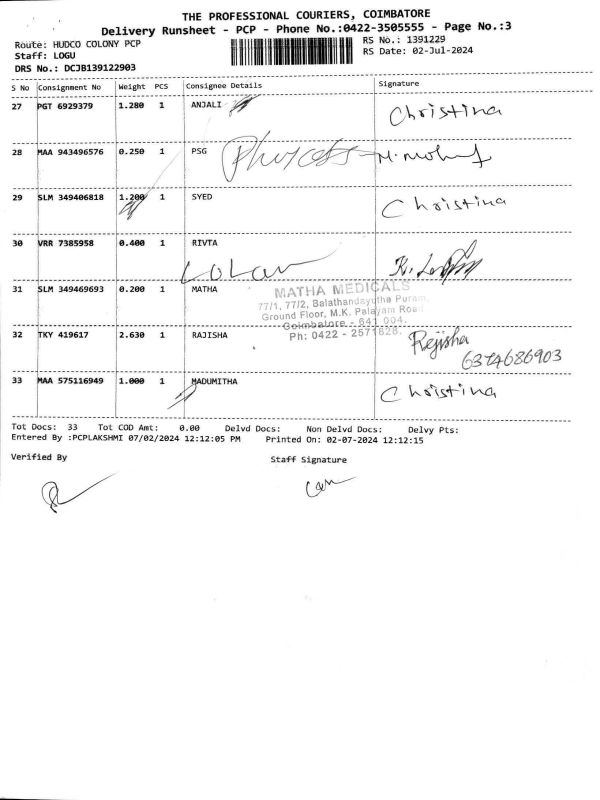 THE PROFESSIONAL COURIERS, COIMBATORE
Delivery Runsheet - PCP - Phone No.:0422-3505555 - Page No.:3
Route: HUDCO COLONY PCP RS No.: 1391229
Staff: LOGU RS Date: 02-Jul-2024
DRS No.: DCJB139122903
S No Consignment No Weight PCS Consignee Details Signature
27 PGT 6929379 1.280 1 ANJALI Christina
28 MAA 943496576 0.250 1 PSG
29 SLM 349406818 1.200 1 SYED Christina
30 VRR 7385958 0.400 1 RIVTA
31 SLM 349469693 0.200 1 MATHA
MATHA MEDICALS
77/1, 77/2, Balathandayutha Puram,
Ground Floor, M.K. Palayam Road
Coimbatore - 641 004.
Ph: 0422 - 2571628.
32 TKY 419617 2.630 1 RAJISHA Rejisha
6374686903
33 MAA 575116949 1.000 1 MADUMITHA Christina
Tot Docs: 33 Tot COD Amt: 0.00 Delvd Docs: Non Delvd Docs: Delvy Pts:
Entered By :PCPLAKSHMI 07/02/2024 12:12:05 PM Printed On: 02-07-2024 12:12:15
Verified By Staff Signature